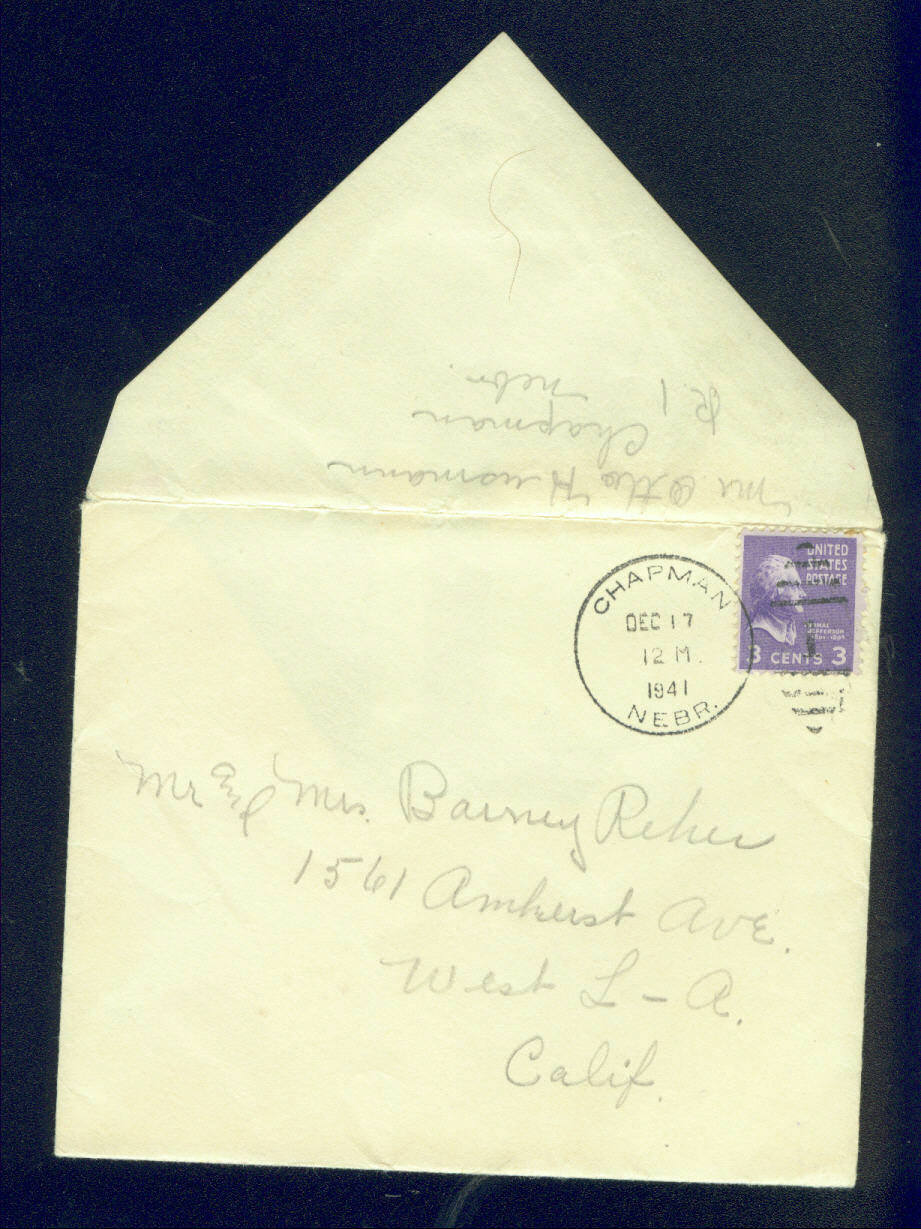 Mr Otto Huomann
Chapman
R. 1 Nebr.
UNITED
STATES
POSTAGE
JEFFERSON
3 CENTS 3
CHAPMAN
DEC 17
12 M.
1941
NEBR.
Mr and Mrs. Barney Reher
1561 Amherst Ave.
West L-A.
Calif.